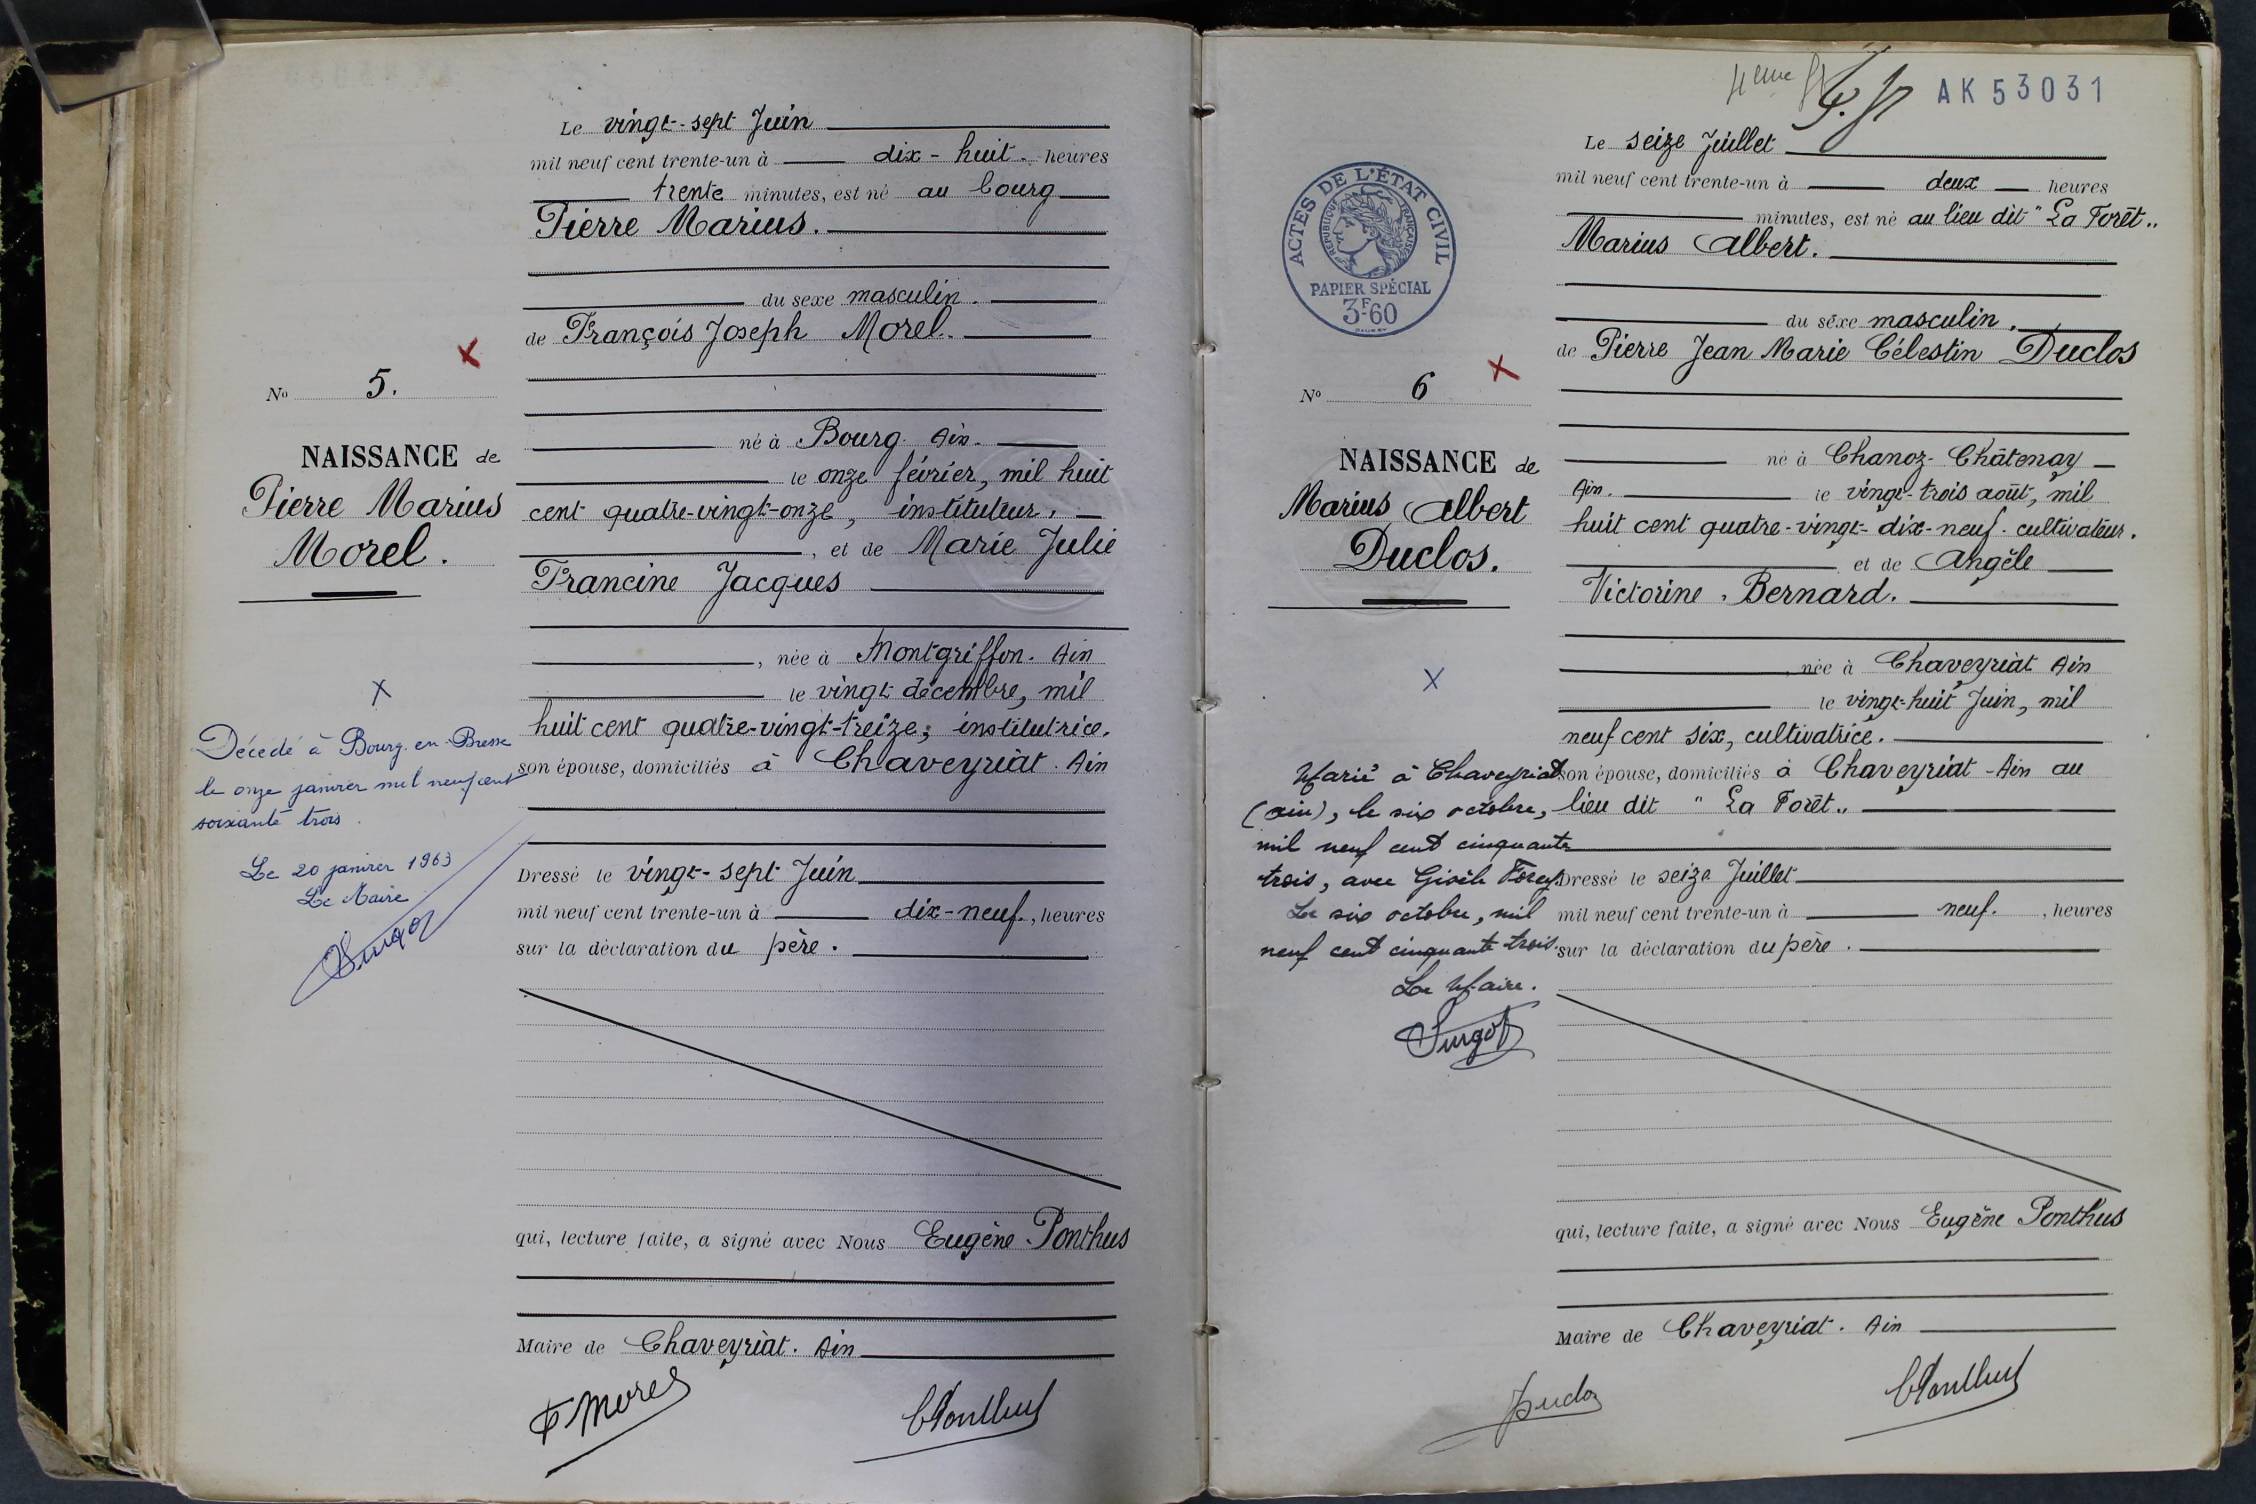 Le vingt-sept Juin
mil neuf cent trente-un à dix-huit heures
trente minutes, est né au bourg
Pierre Marius.
du sexe masculin.
de François Joseph Morel.
No 5.
né à Bourg. Ain.
NAISSANCE de
Pierre Marius
Morel.
le onze février, mil huit
cent quatre-vingt-onze, instituteur.
, et de Marie Julie
Francine Jacques
, née à Montgriffon. Ain
le vingt décembre, mil
huit cent quatre-vingt-treize, institutrice.
son épouse, domiciliés à Chaveyriat. Ain
X
Décédé à Bourg-en-Bresse
le onze janvier mil neuf cent
soixante trois.
Le 20 janvier 1963
Le Maire
Dressé le vingt-sept Juin
mil neuf cent trente-un à dix-neuf., heures
sur la déclaration du père.
qui, lecture faite, a signé avec Nous Eugène Ponthus
Maire de Chaveyriat. Ain
F Morel
4eme
AK53031
Le seize Juillet
mil neuf cent trente-un à deux heures
minutes, est né au lieu dit "La Forêt"
Marius Albert.
du sexe masculin.
de Pierre Jean Marie Célestin Duclos
ACTES DE L'ÉTAT CIVIL
RÉPUBLIQUE FRANÇAISE
PAPIER SPÉCIAL
3F60
No 6
NAISSANCE de
Marius Albert
Duclos.
né à Chanoz-Châtenay
Ain. le vingt-trois août, mil
huit cent quatre-vingt-dix-neuf. cultivateur.
et de Angèle
Victorine Bernard.
, née à Chaveyriat Ain
le vingt-huit Juin, mil
neuf cent six, cultivatrice.
son épouse, domiciliés à Chaveyriat-Ain au
lieu dit "La Forêt"
X
Marié à Chaveyriat
(ain), le six octobre,
mil neuf cent cinquante
trois, avec Gisèle Forey.
Le six octobre, mil
neuf cent cinquante trois.
Le Maire.
Dressé le seize Juillet
mil neuf cent trente-un à neuf. , heures
sur la déclaration du père.
qui, lecture faite, a signé avec Nous Eugène Ponthus
Maire de Chaveyriat. Ain